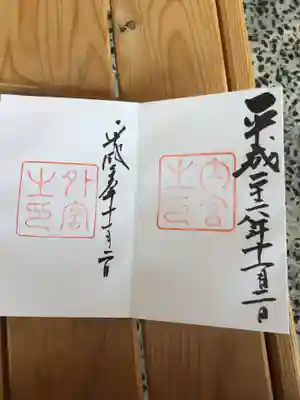 平成二十六年十一月二日
内宮
之印
平成二十六年十一月二日
外宮
之印